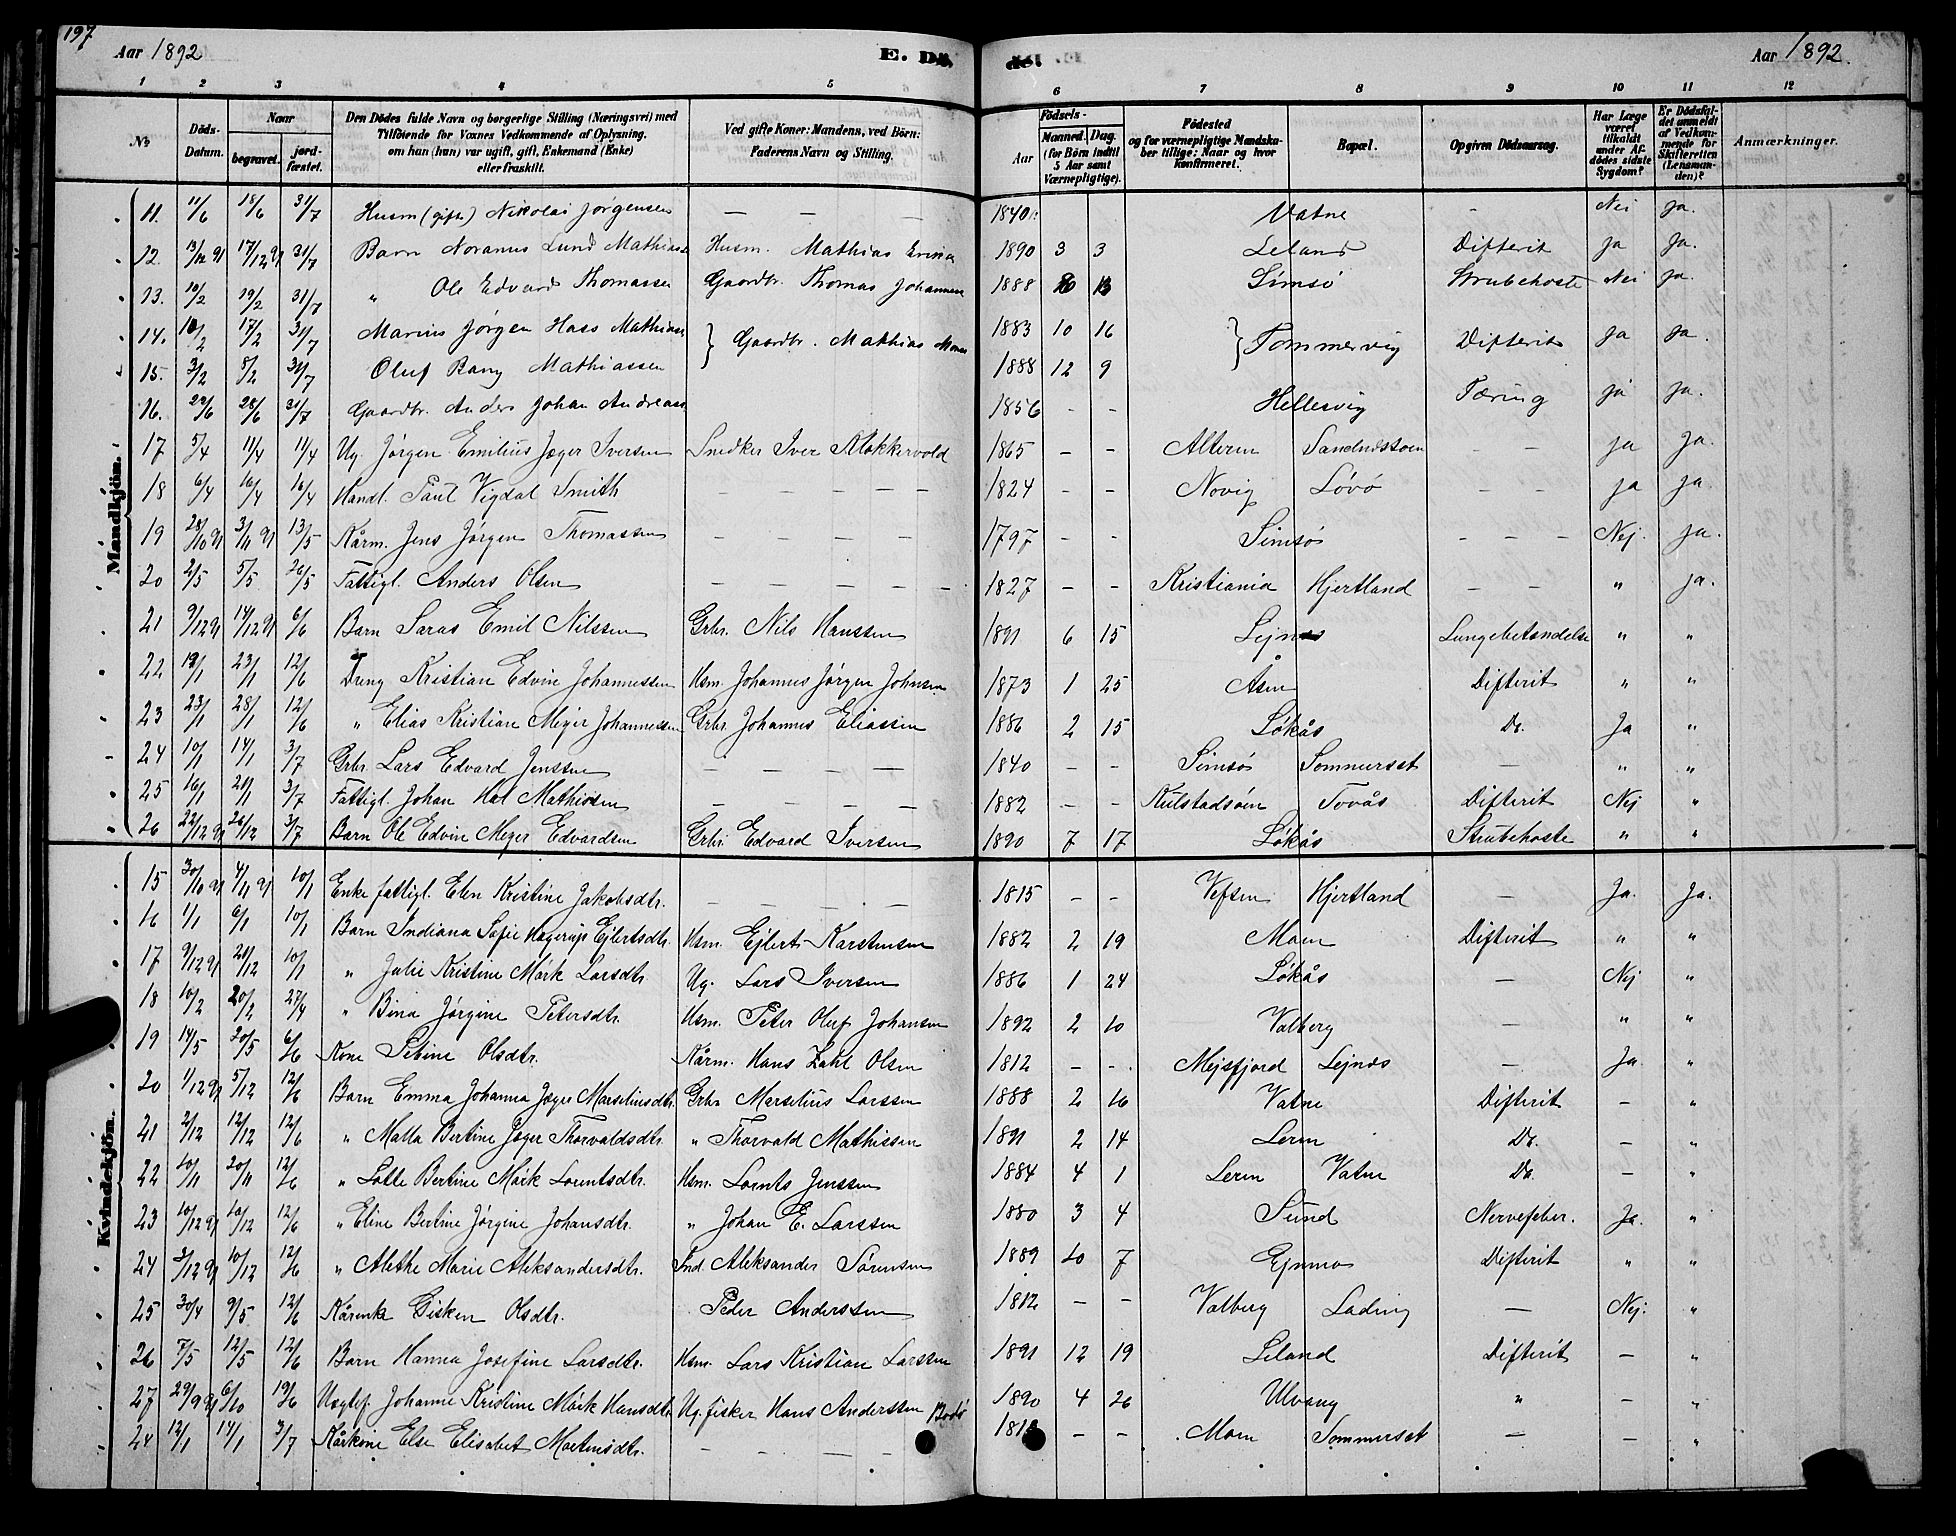 197
Aar 1892
E. Dö-
de.
Aar 1892.
1 2 3 4 5 6 7 8 9 10 11 12
№
Döds-Datum.
Naar
begravet.
jord-fæstet.
Den Dödes fulde Navn og borgerlige Stilling (Næringsvei) med Tilföiende for Voxnes Vedkommende af Oplysning, om han (hun) var ugift, gift, Enkemand (Enke) eller fraskilt.
Ved gifte Koner: Mandens, ved Börn: Faderens Navn og Stilling.
Födsels-
Aar
Maaned. Dag.
(for Börn indtil 5 Aar samt Værnepligtige).
Födested og for værnepligtige Mandskaber tillige: Naar og hvor konfirmeret.
Bopæl.
Opgiven Dödsaarsag.
Har Læge været tilkaldt under Afdödes sidste Sygdom?
Er Dödsfaldet anmeldt af Vedkommende for Skifteretten (Lensmanden)?
Anmærkninger.
Mandkjön.
11. 11/6 18/6 31/7 Husm (gift) Nikolai Jørgensen — — — 1840 Vatne - Nei ja.
12. 13/12 91 17/12 91 31/7 Barn Noranus Lund Mathias Husm. Mathias 1890 3 3 Leland Difterit ja ja.
13. 10/2 19/2 31/7 " Ole Edvard Thomassen Gaardbr. Thomas Johannesen 1888 Simsø Strubehoste Nei ja.
14. 10/2 17/2 31/7 Marius Jørgen Hass Mathias } Gaardbr. Mathias 1883 10 16 } Tommervig Difterit ja ja.
15. 3/2 5/2 31/7 Oluf Bang Mathiassen 1888 12 9
16. 22/6 28/6 31/7 Gaardbr. Anders Johan Andreass 1856 - - Hellesvig Tæring ja ja.
17 5/4 11/4 11/4 Ug. Jørgen Emilius Jæger Iversen Snedker Iver Klokkervold 1865 - - Alteren Sandnæstoen — — ja ja.
18 6/4 16/4 16/4 Handl. Paul Vigdal Smith — — — — 1824 - - Novig Løvø — — ja ja.
19 28/10 91 3/11 91 13/5 Kårm. Jens Jørgen Thomassen — — — — 1797 - - Simsø — — — Nej. ja.
20 2/5 5/5 26/5 Fattigl. Anders Olsen — — — — 1827 - - Kristiania Hjertland — — " ja.
21 9/12 91 14/12 91 6/6 Barn Saras Emil Nilssen Grbr. Nils Hanssen 1891 6 15 Lejnes Lungebetændelse " "
22 19/1 23/1 12/6 Dreng Kristian Edvin Johannessen Hsm. Johannes Jørgen Johnsen 1873 1 25 Åsen Difterit " "
23 23/1 28/1 12/6 " Elias Kristian Mejer Johannessen Grbr. Johannes Eliassen 1886 2 15 Løkås Do. Ja "
24 10/1 14/1 3/7 Grbr. Lars Edvard Jenssen — — — — 1840 - - Simsø Sommerset — " "
25 16/1 20/1 3/7 Fattigl. Johan Hal Mathissen — — — — 1882 - - Kulstadsøen Tovås Difterit Nej "
26 22/12 91 26/12 3/7 Barn Ole Edvin Mejer Edvardsen Grbr. Edvard Iversen 1890 7 17 Løkås Strubehoste " "
Kvindekjön.
15 30/10 91 4/11 91 10/1 Enke fattigl. Elen Kristine Jakobsdtr. — — — — 1815 - - Vefsen Hjertland — Ja. Ja.
16 1/1 6/1 10/1 Barn Indiana Sofie Hagerup Ejlertsdtr. Hsm. Ejlert Karstensen 1882 2 19 Moen Difterit " "
17 9/12 91 20/12 10/1 " Julie Kristine Mørk Larsdtr. Ug. Lars Iversen 1886 1 24 Løkås — Nej "
18 10/2 20/2 27/4 " Bina Jørgine Petersdtr. Hsm. Peter Oluf Johansen 1892 2 10 Valberg — " "
19 14/5 20/5 6/6 Kone Sebine Olsdtr. Kårm. Hans Zahl Olsen 1812 - - Mejsfjord Lejnes — Ja. "
20 1/12 91 5/12 12/6 Barn Emma Johanna Jæger Marseliusdtr. Grbr. Marselius Larssen 1888 2 16 Vatne Difterit — "
21 2/12 12/12 12/6 " Malla Bertine Jæger Thorvaldsdtr. " Thorvald Mathissen 1891 2 14 Leren Do. — "
22 10/11 20/11 12/6 " Lotte Bertine Mørk Lorntsdtr. Hsm. Lornts Jenssen 1884 4 1 Leren Vatne Do. — "
23 10/12 91 10/12 12/6 " Eline Bertine Jørgine Johansdtr. " Johan E. Larssen 1880 3 4 Sund Nervefeber. Ja. "
24 3/12 91 10/12 12/6 " Alethe Marie Aleksandersdtr. Ind. Aleksander Sørensen 1889 10 7 Ejnmo Difterit " "
25 30/4 9/5 12/6 Kårenke Gisken Olsdtr. Peder Anderssen 1812 — — Valberg Lading — Nej. "
26 7/5 12/5 12/6 Barn Hanna Josefine Larsdtr. Hsm. Lars Kristian Larssen 1891 12 19 Leland Difterit — "
27 29/9 91 6/10 19/6 Uægtef. Johanne Kristine Mørk Hansdtr. Ug. fisker Hans Anderssen Bodø 1890 4 26 Ulvang " — "
24 12/1 14/1 3/7 Kårkone Else Elisabet Mortensdtr. — — — — — — Moen Sommerset — — "